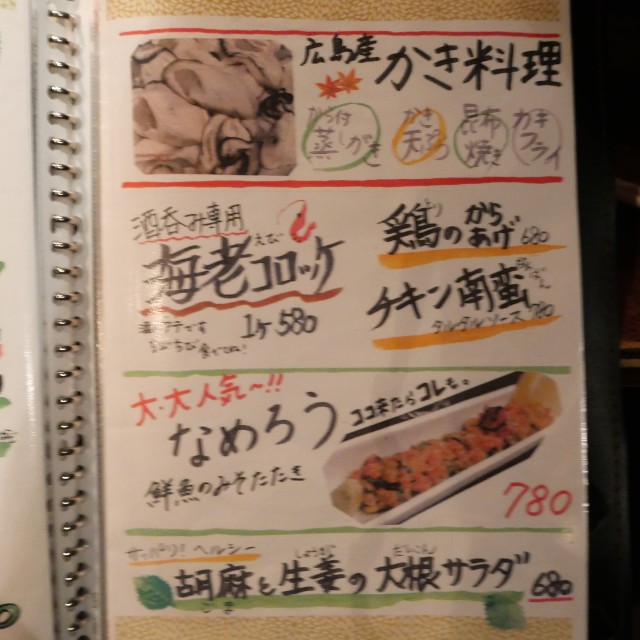 広島産 かき料理
蒸しがき
かき天ぷら
昆布焼き
かきフライ
酒呑み専用
えび
海老コロッケ
1ケ 580
鶏のからあげ 680
チキン南蛮
タルタルソース 780
大・大人気〜!!
なめろう ココ来たらコレも。
鮮魚のみそたたき
780
サッパリ!ヘルシー
胡麻と生姜の大根サラダ 680
ごま しょうが だいこん